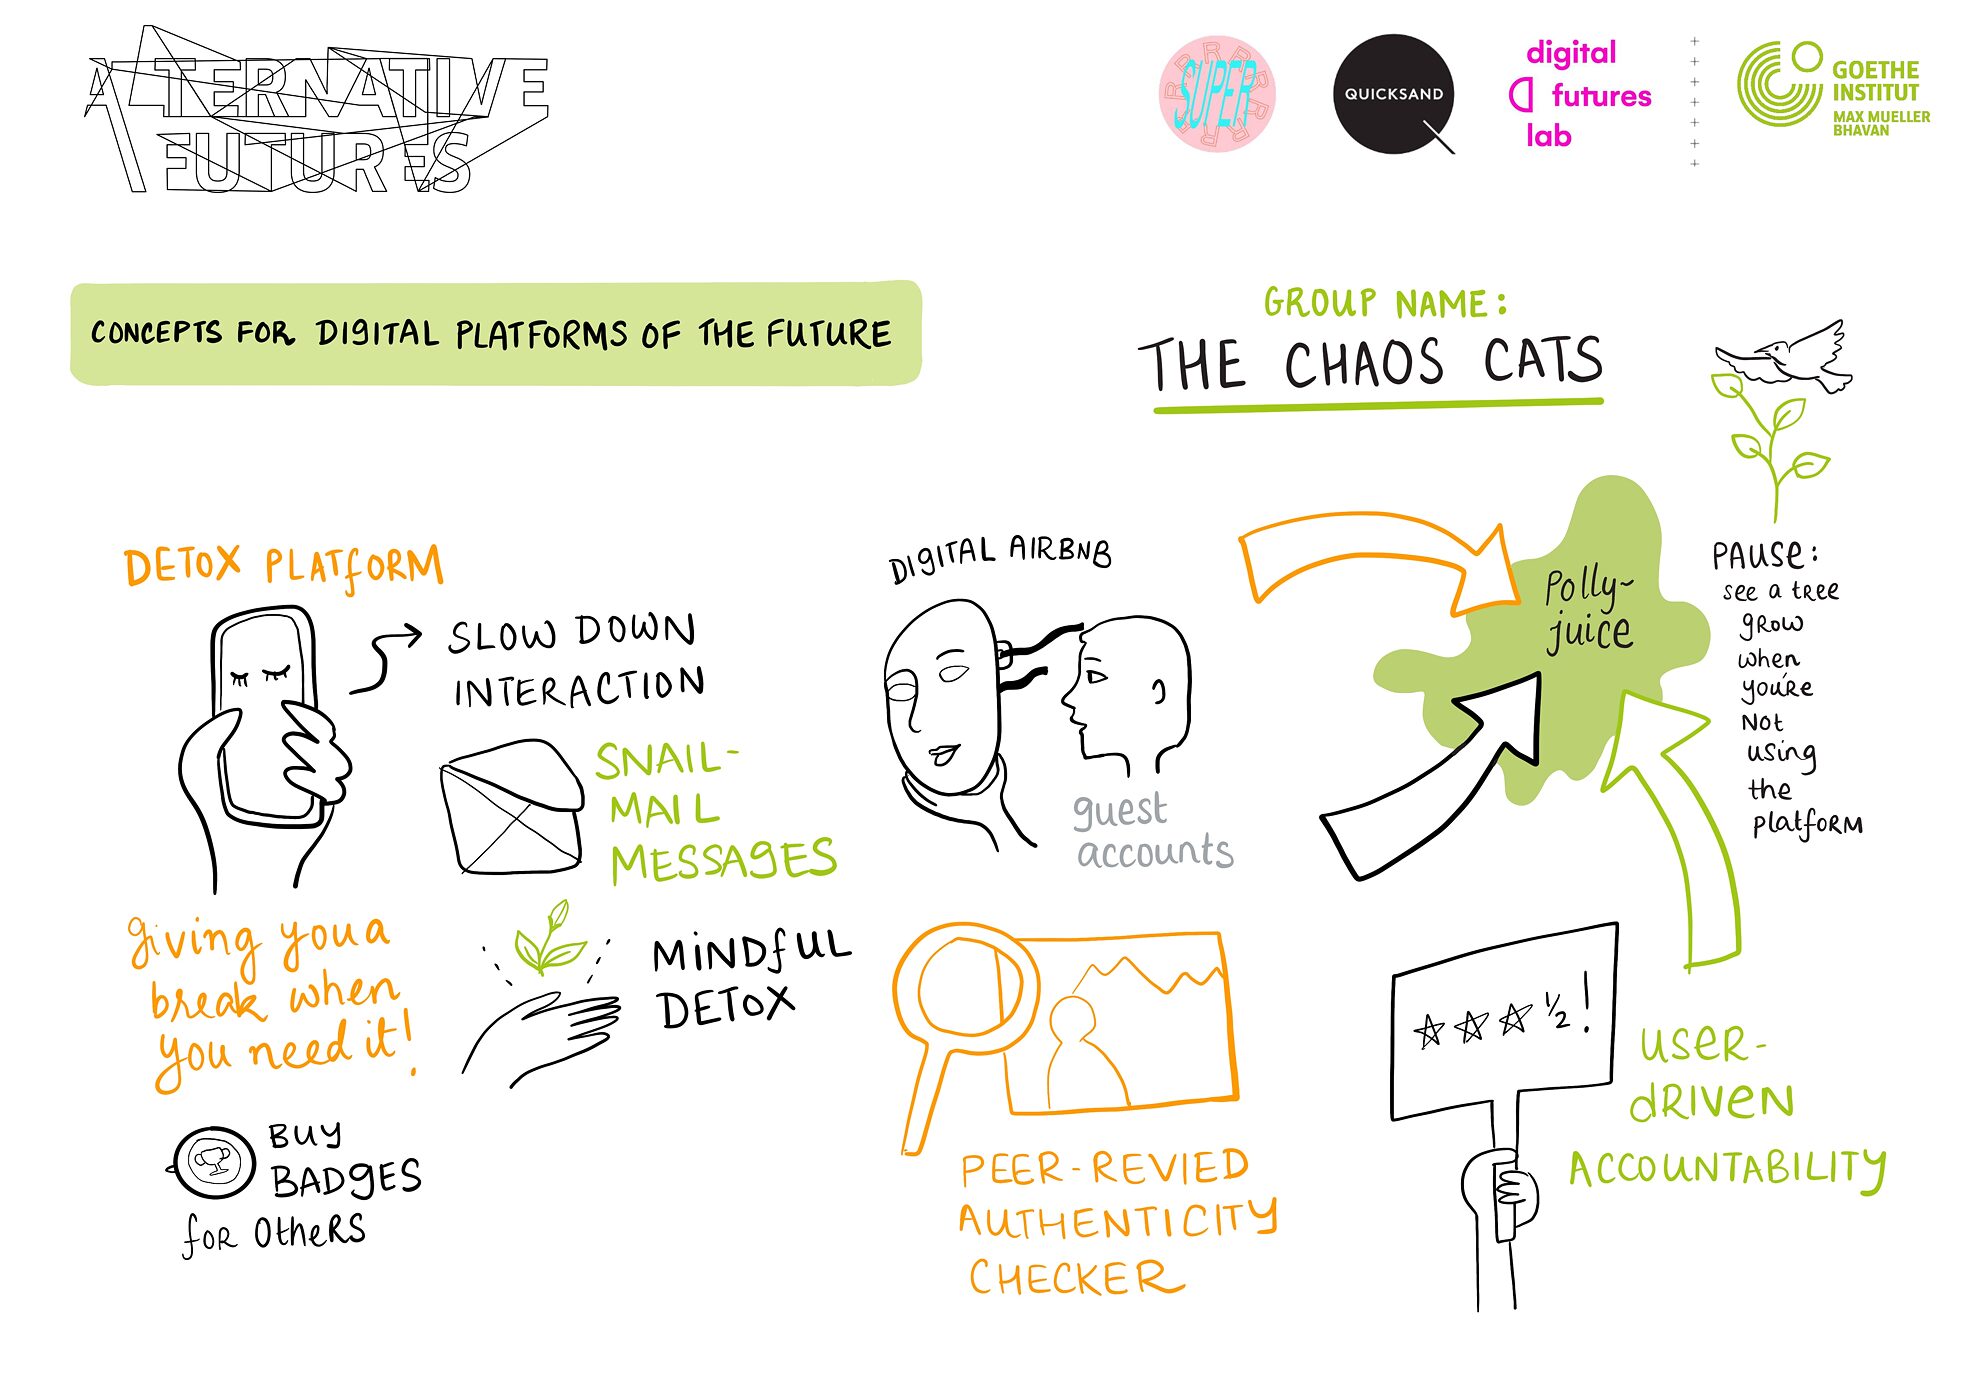 ALTERNATIVE
FUTURES
SUPER
RRRRRRRRR
QUICKSAND
digital
futures
lab
GOETHE
INSTITUT
MAX MUELLER
BHAVAN
CONCEPTS FOR DIGITAL PLATFORMS OF THE FUTURE
GROUP NAME:
THE CHAOS CATS
DETOX PLATFORM
SLOW DOWN
INTERACTION
SNAIL-
MAIL
MESSAGES
giving you a
break when
you need it!
MINDFUL
DETOX
BUY
BADGES
for OTHERS
DIGITAL AIRBNB
guest
accounts
PEER-REVIED
AUTHENTICITY
CHECKER
Polly-
juice
PAUSE:
see a tree
grow
when
you're
Not
using
the
platform
½!
USER-
DRIVEN
ACCOUNTABILITY